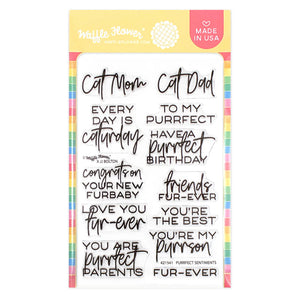 Waffle Flower
MADE IN
USA
Cat Mom
Cat Dad
EVERY
DAY IS
caturday
TO MY
PURRFECT
HAVE A
purrfect
BIRTHDAY
congrats on
YOUR NEW
FURBABY
friends
FUR-EVER
LOVE YOU
fur-ever
YOU'RE
THE BEST
YOU ARE
purrfect
PARENTS
YOU'RE MY
purrson
421541 PURRFECT SENTIMENTS
FUR-EVER